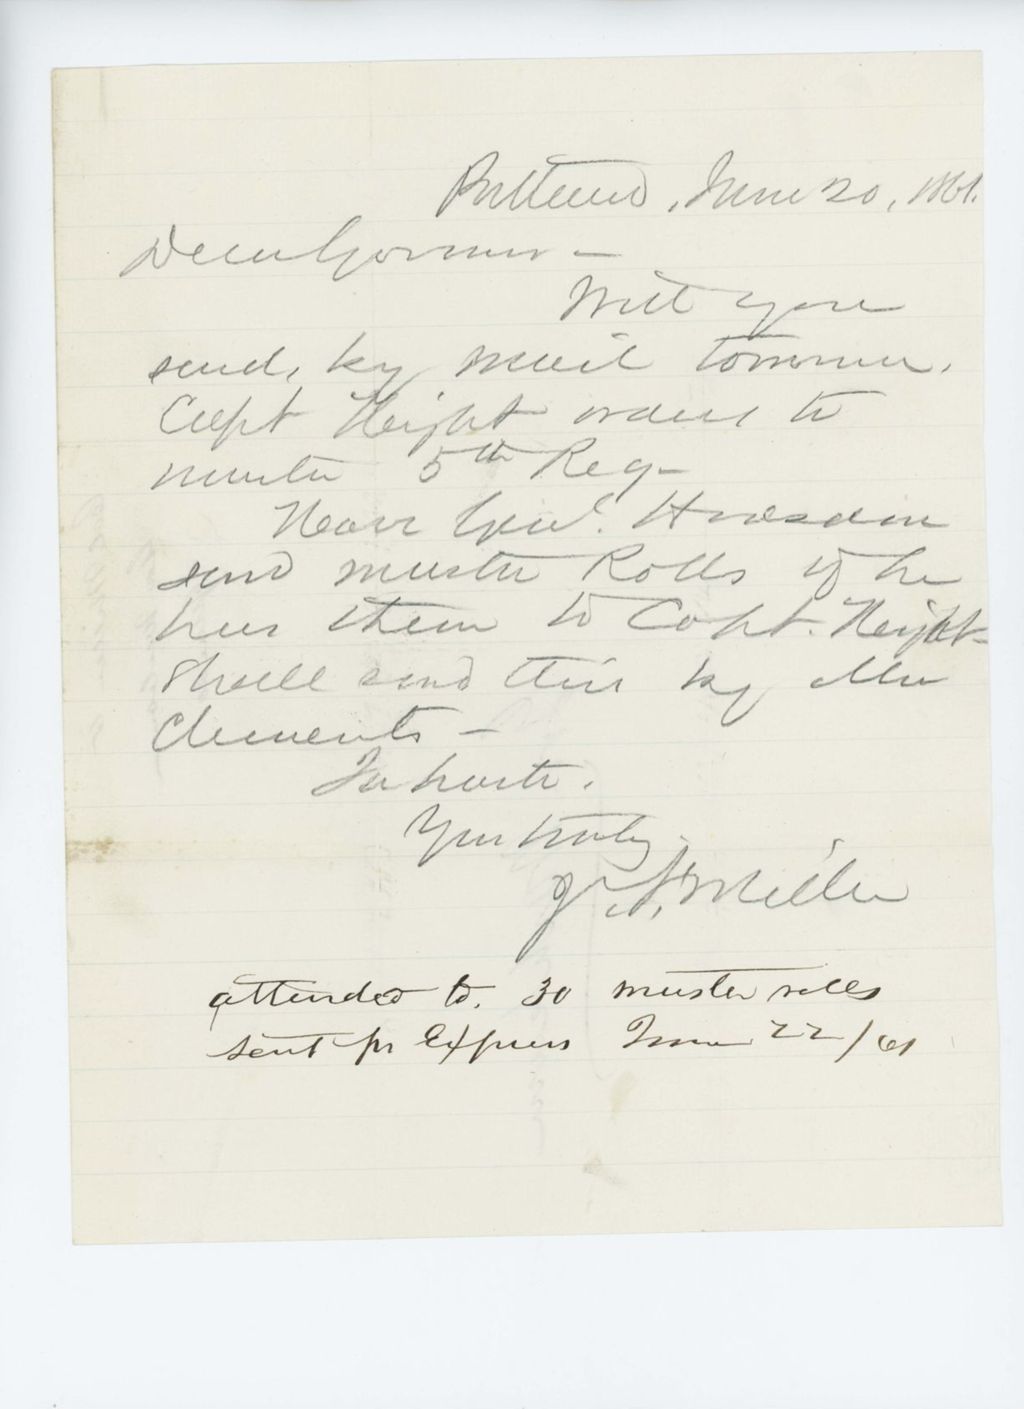 Portland, June 20, 1861.
Dear Governor –
Will you
send, by mail tomorrow,
Capt Height orders to
muster 5th Reg –
Have Genl. Hodsdon
send muster Rolls if he
has them to Capt. Height –
Shall send this by Mr
Clements –
In haste.
Yours truly
J. N. Miller
attended to. 30 muster rolls
sent pr Express June 22/61